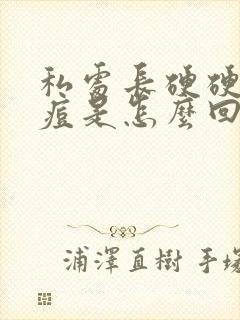 私處長硬硬
痘是怎麼回
浦澤直樹 手塚